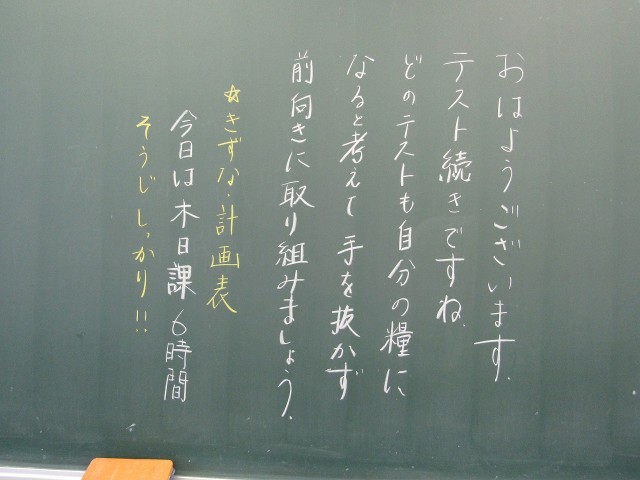 おはようございます.
テスト続きですね.
どのテストも自分の糧に
なると考えて手を抜かず
前向きに取り組みましょう.
☆きずな・計画表
今日は木日課6時間
そうじしっかり!!